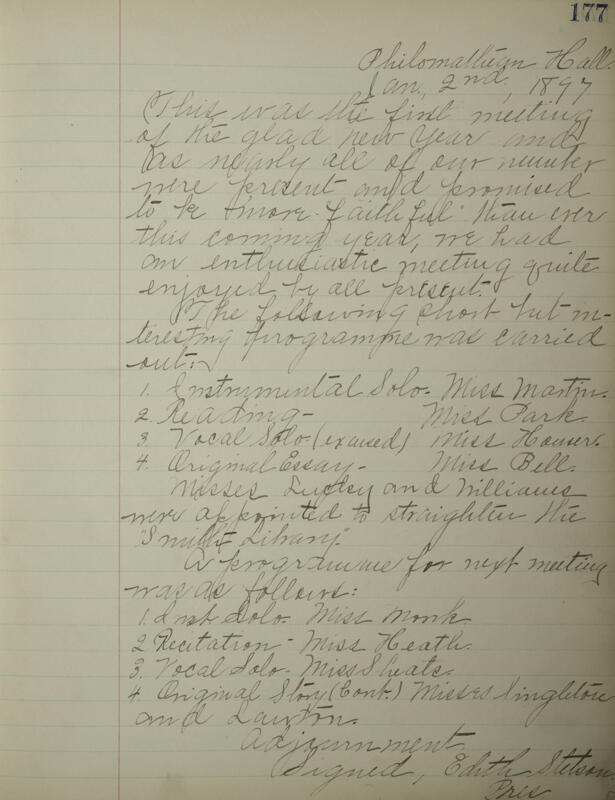 177
Philomathean Hall.
Jan, 2nd, 1897
This was the first meeting
of the glad new year and
as nearly all of our number
were present and promised
to be "more faithful" than ever
this coming year, we had
an enthusiastic meeting quite
enjoyed by all present.
The following short but in-
teresting programme was carried
out:
1. Instrumental Solo- Miss Martin.
2. Reading- Miss Park.
3. Vocal Solo-(excused) Miss Houser.
4. Original Essay- Miss Bell.
Misses and Williams
were appointed to straighten the
"Smith Library."
A programme for next meeting
was as follows:
1. Inst Solo- Miss Monk
2 Recitation- Miss Heath.
3. Vocal Solo- Miss Sheats.
4 Original Story (Cont.) Misses Singleton
and Lawton.
Adjournment.
Signed, Edith Stetson
Pres